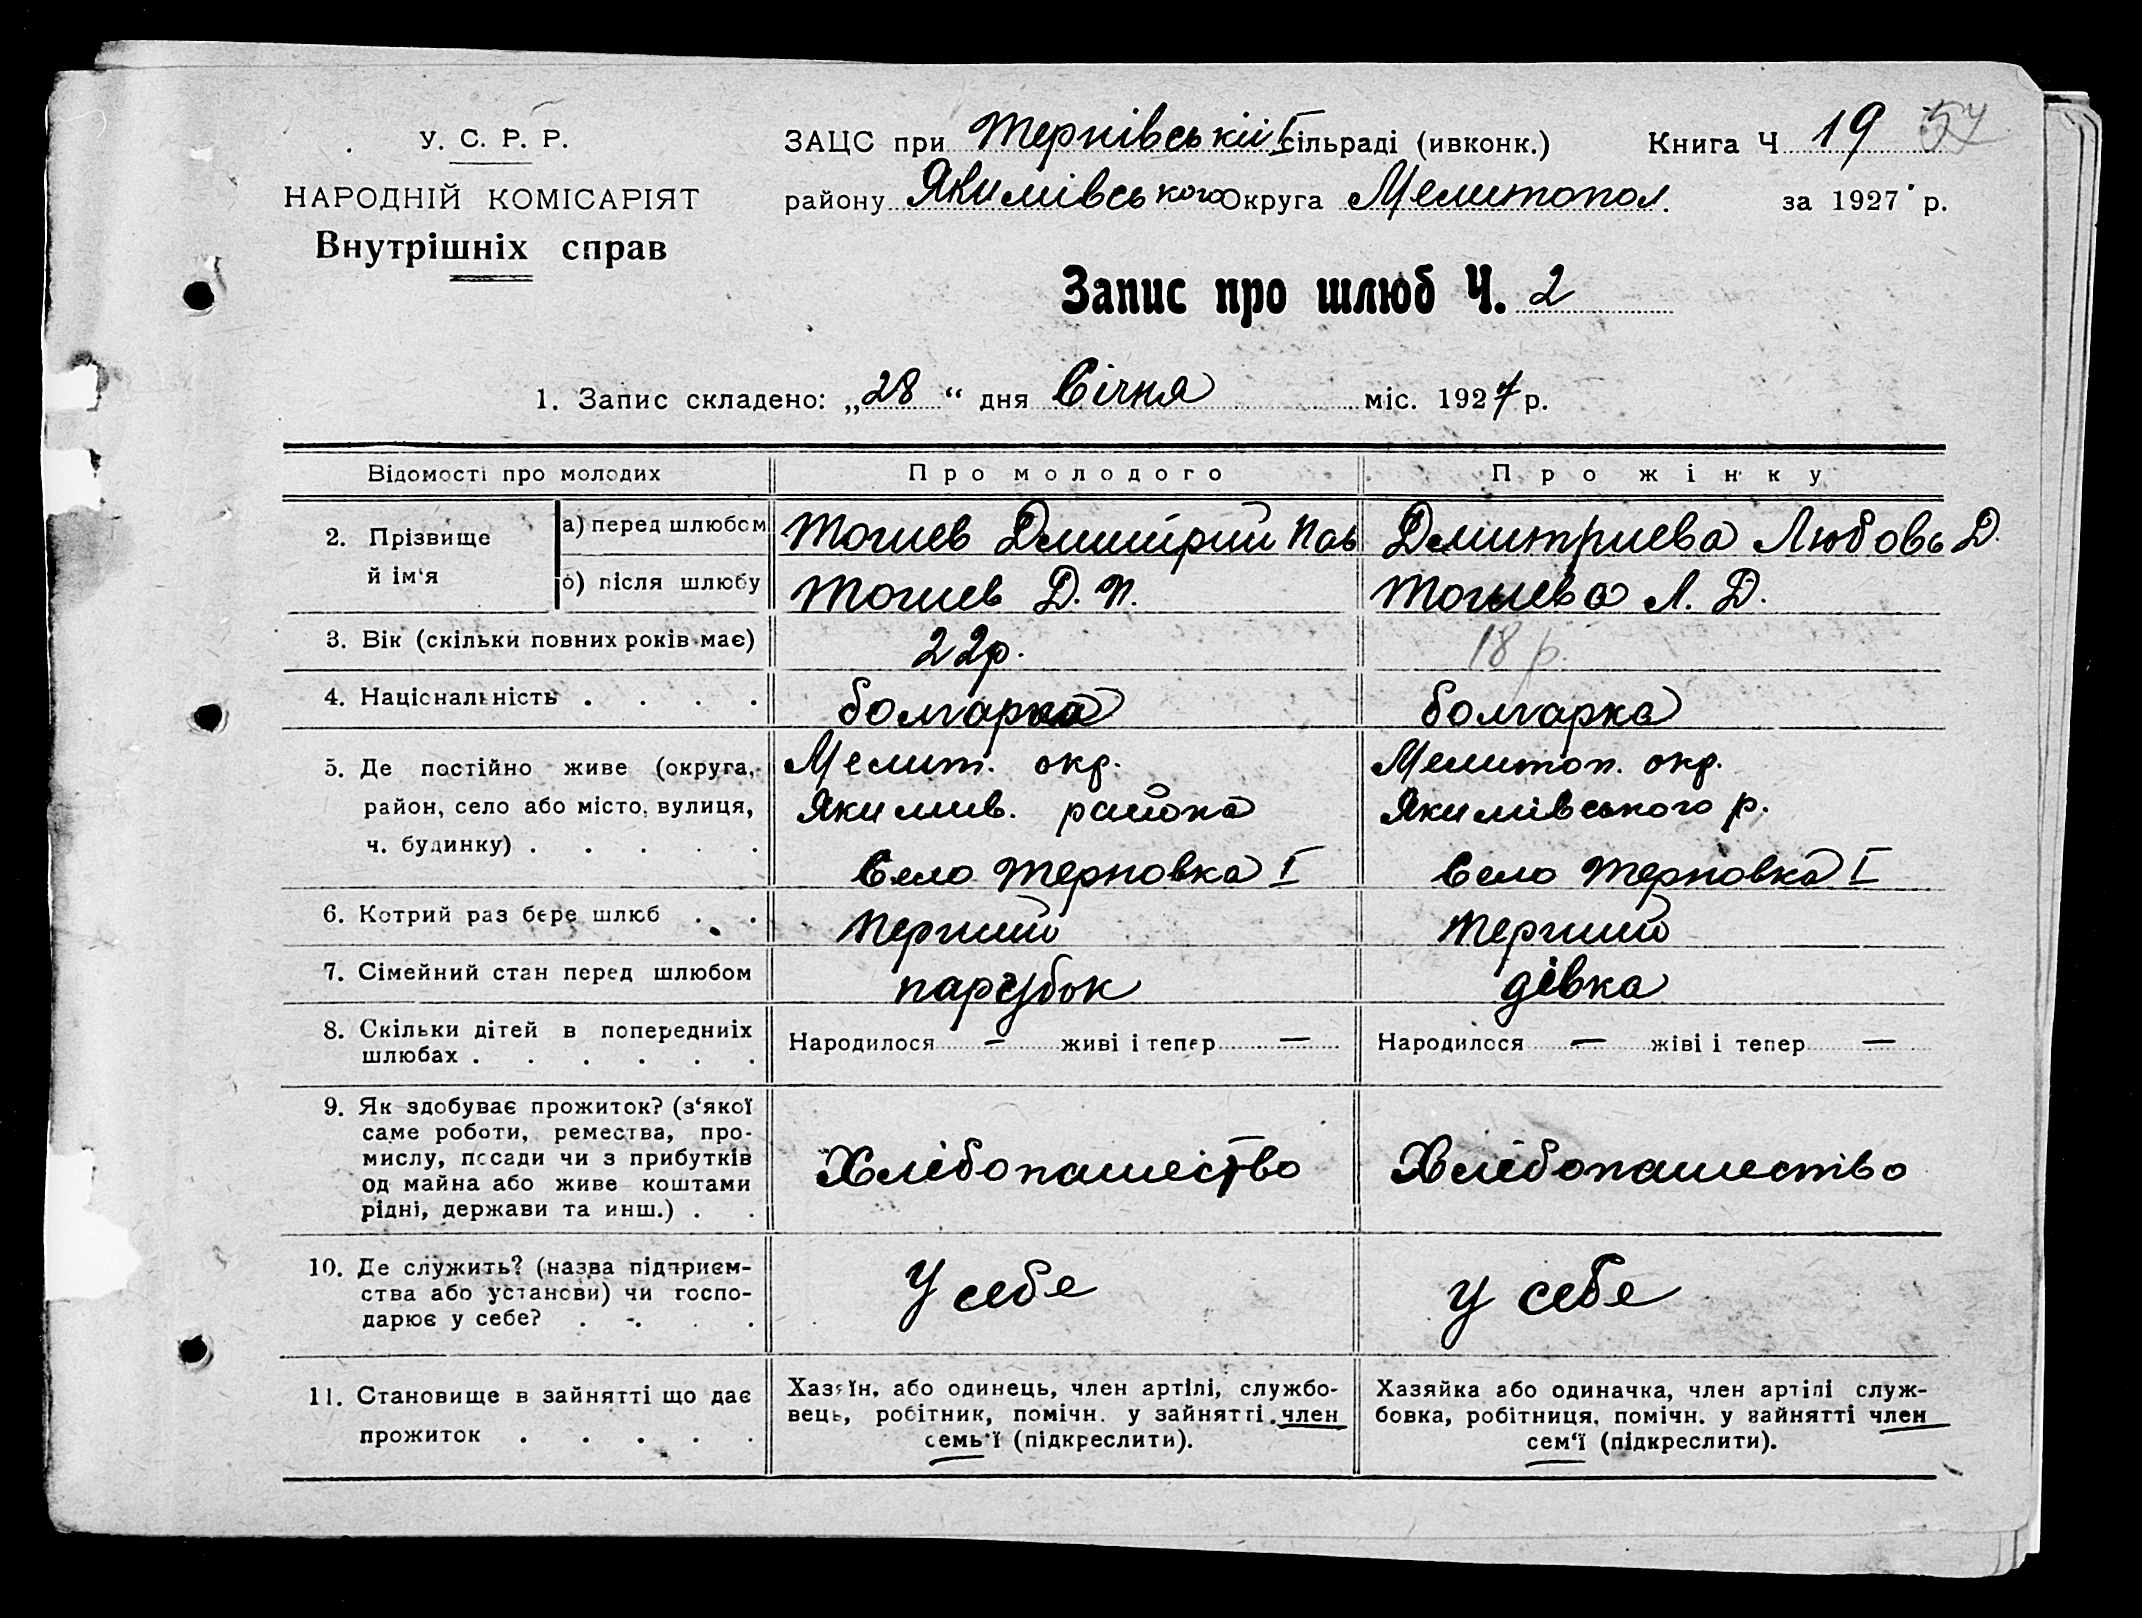 У. С. Р. Р.
НАРОДНІЙ КОМІСАРІЯТ
Внутрішніх справ
ЗАЦС при Тернівській I сільраді (ивконк.) Книга Ч 19 57
району Якимівського Округа Мелитопол. за 1927 р.
Запис про шлюб Ч. 2
1. Запис складено: „28“ дня Січня міс. 1927 р.
Відомості про молодих Про молодого Про жінку
2. Прізвище й ім'я
а) перед шлюбом Тогиев Дмитрий Пав Дмитриева Любовь Д.
б) після шлюбу Тогиев Д. П. Тогиева Л. Д.
3. Вік (скільки повних років має) 22р. 18 р.
4. Національність . . . . болгарка болгарка
5. Де постійно живе (округа, район, село або місто, вулиця, ч. будинку) . . . . .
Мелит. окр. Мелитоп. окр.
Якимив. района Якимівського р.
Село Терновка I Село Терновка I
6. Котрий раз бере шлюб . . Перший Перший
7. Сімейний стан перед шлюбом парубок дівка
8. Скільки дітей в попередниіх шлюбах . . . . . .
Народилося — живі і тепер — Народилося — жіві і тепер —
9. Як здобуває прожиток? (з‘якої
саме роботи, ремества, про-
мислу, посади чи з прибутків
од майна або живе коштами
рідні, держави та инш.) . .
Хлібопашество Хлібопашество
10. Де служить? (назва підприєм-
ства або установи) чи госпо-
дарює у себе? . . . .
У себе у себе
11. Становище в зайнятті що дає
прожиток . . . . .
Хазяїн, або одинець, член артілі, службо-
вець, робітник, помічн. у зайнятті член
семь'ї (підкреслити).
Хазяйка або одиначка, член артілі служ-
бовка, робітниця, помічн. у зайнятті член
сем‘ї (підкреслити).